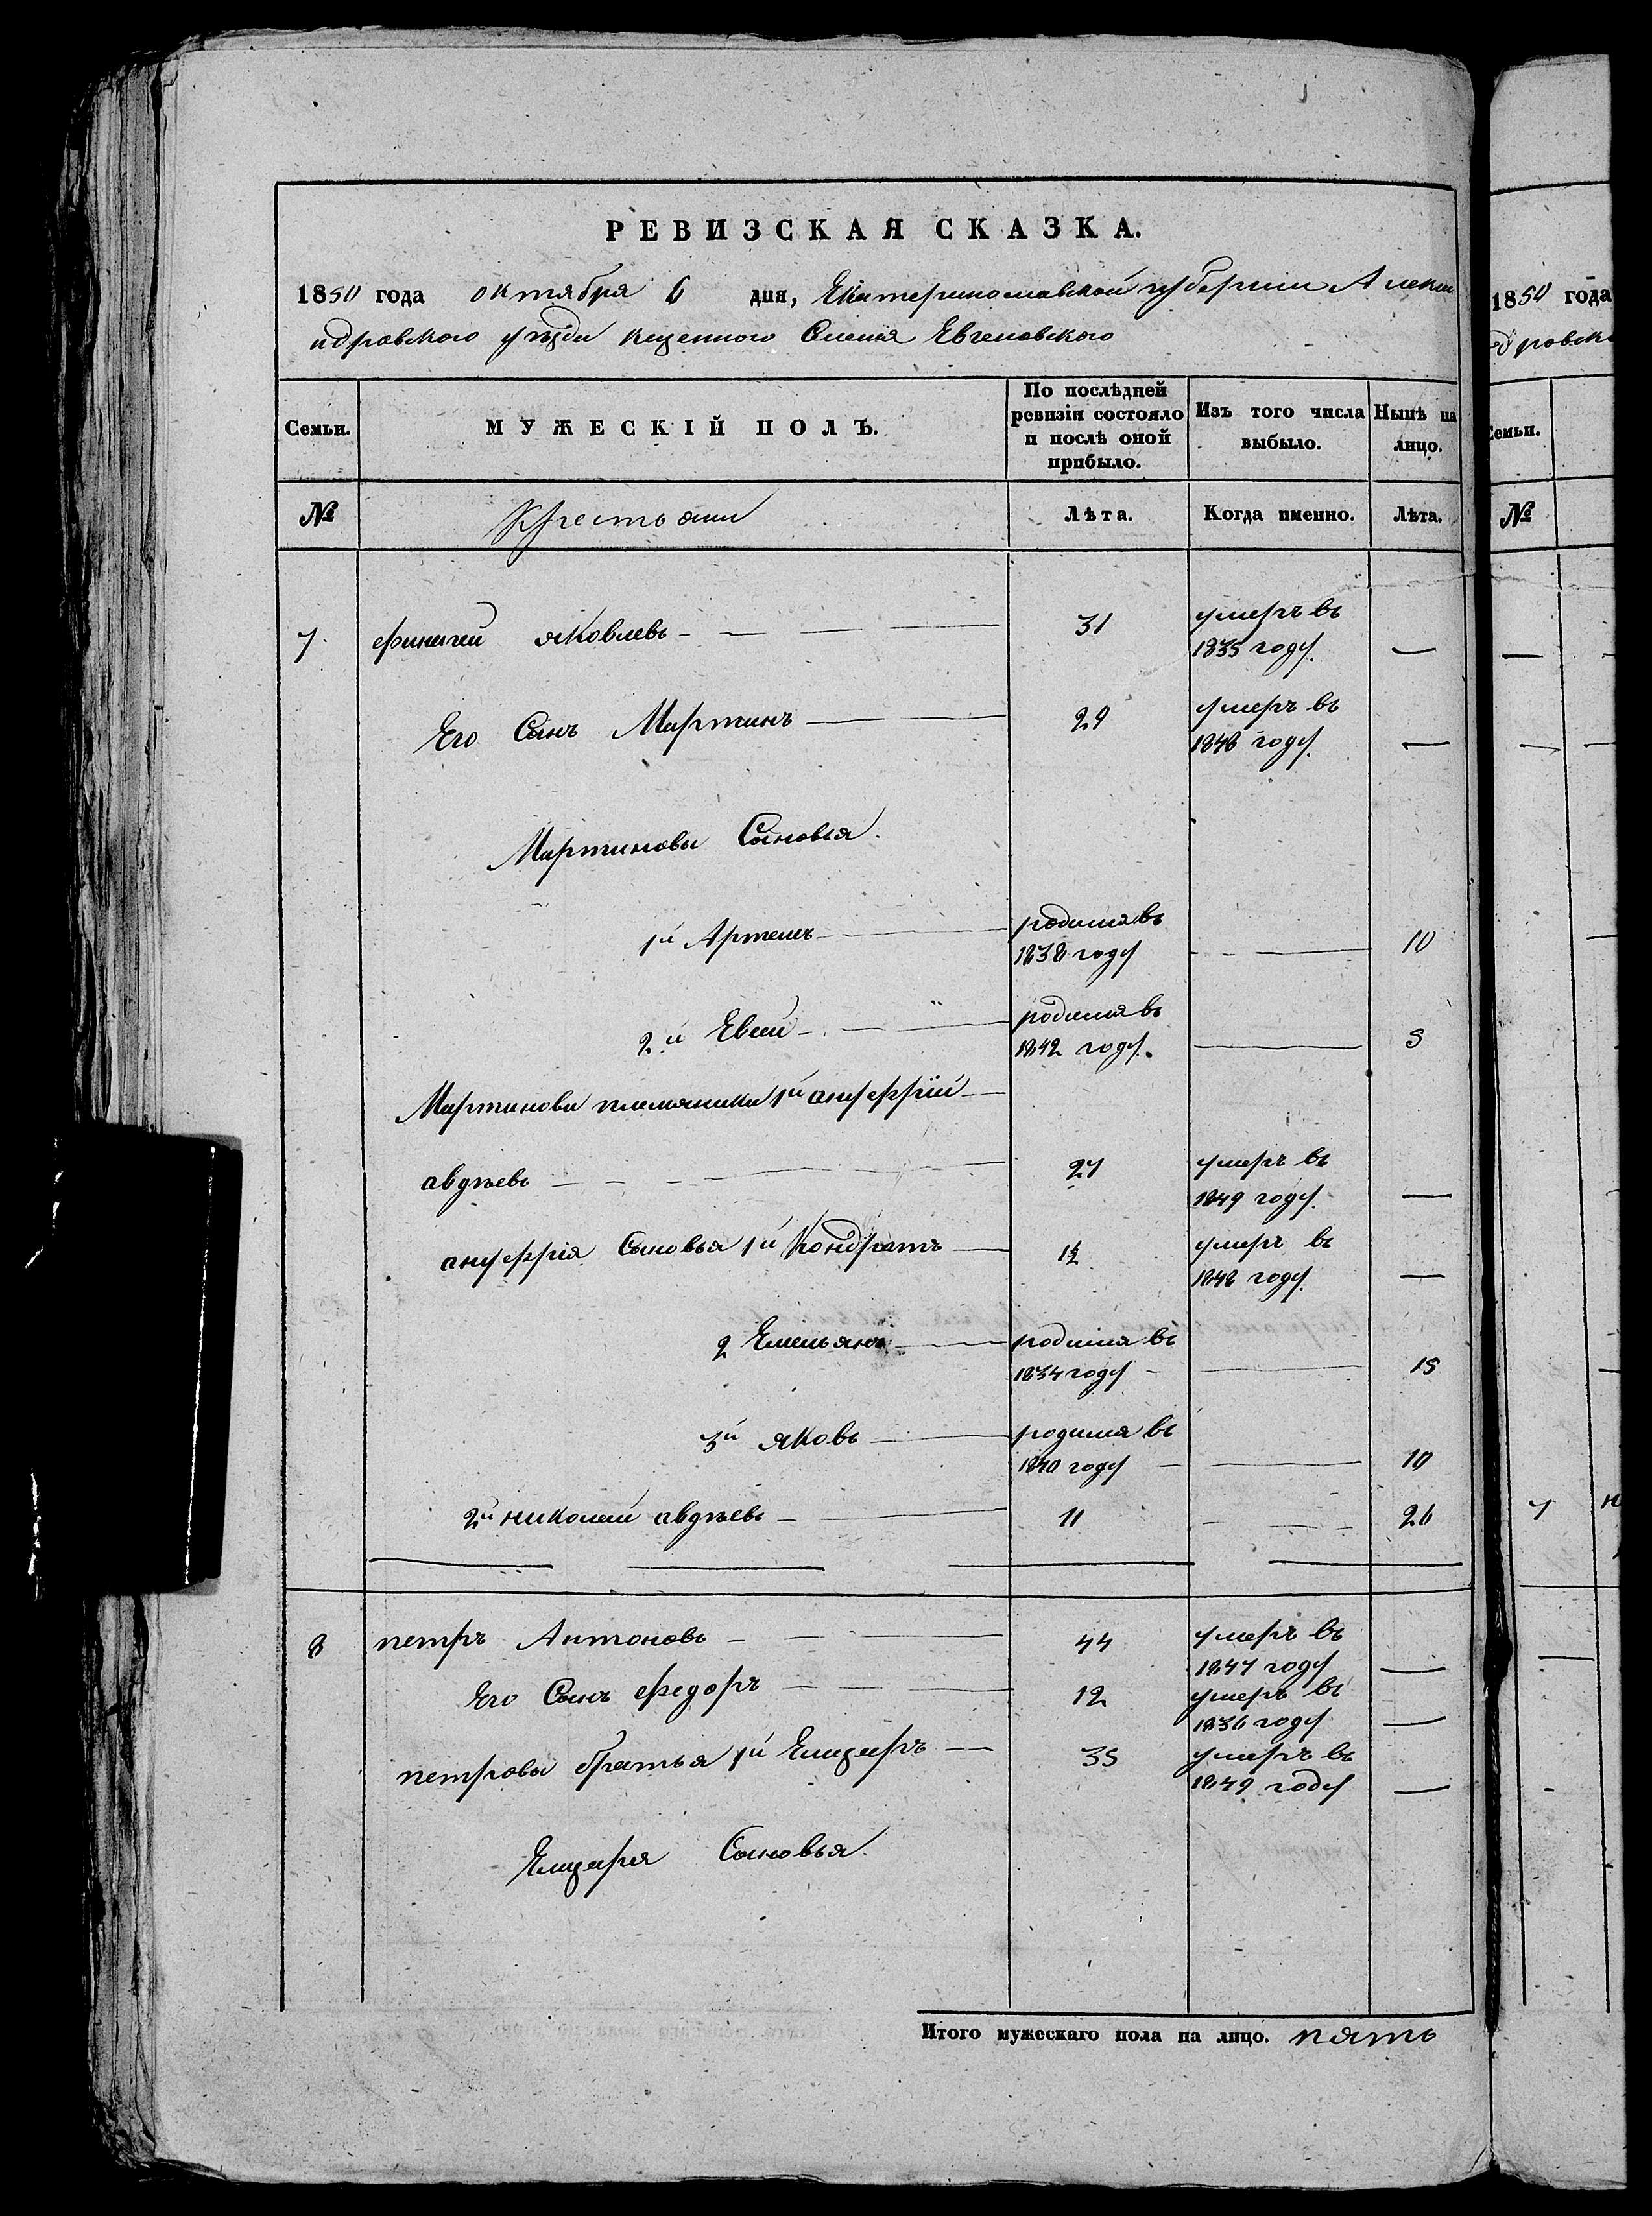 РЕВИЗСКАЯ СКАЗКА.
1850 года октября 6 дня, Екатеринославской губернии Алекса
ндровского уѣзда казенного Селения Евгеновского
Семьи. МУЖЕСКІЙ ПОЛЪ. По послѣдней ревизіи состояло и послѣ оной прибыло. Изъ того числа выбыло. Нынѣ на лицо.
№ Крестьяни Лѣта. Когда именно. Лѣта.
7. яковлевъ 31 умеръ въ
1835 году. —
Его Сынъ Мартинъ 29 умеръ въ
1848 году. —
Мартиновы Сыновья.
1й Артемъ родился въ
1838 году 10
2й Евсей родился въ
1842 году. 8
Мартинова племяники 1й ануфрій
авдѣевъ 27 умеръ въ
1849 году. —
ануфрія Сыновья 1й Кондратъ 1½ умеръ въ
1848 году. —
2 Емельянъ родился въ
1834 году 15
3й яковъ родился въ
1840 году 10
2й николай авдѣевъ 11 26
8 петръ Антоновъ 44 умеръ въ
1847 году —
Его Сынъ федоръ 12 умеръ въ
1836 году —
петровы братья 1й Елизаръ 35 умеръ въ
1849 году —
Елизара Сыновья.
Итого мужескаго пола на лицо. пять
1850 года
дровско
Семьи.
№
7 н